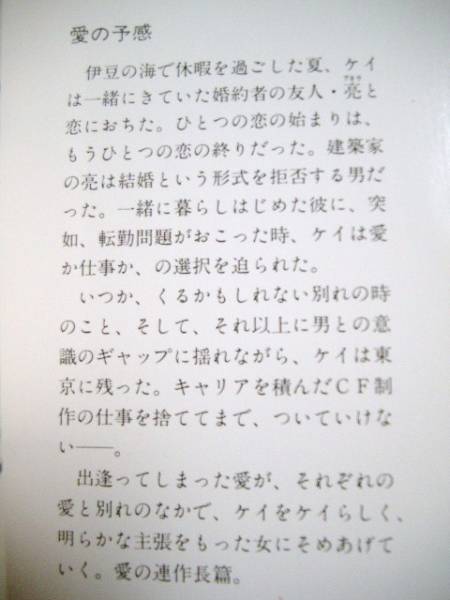 愛の予感
伊豆の海で休暇を過ごした夏、ケイ
は一緒にきていた婚約者の友人・亮と
恋におちた。ひとつの恋の始まりは、
もうひとつの恋の終りだった。建築家
の亮は結婚という形式を拒否する男だ
った。一緒に暮らしはじめた彼に、突
如、転勤問題がおこった時、ケイは愛
か仕事か、の選択を迫られた。
いつか、くるかもしれない別れの時
のこと、そして、それ以上に男との意
識のギャップに揺れながら、ケイは東
京に残った。キャリアを積んだCF制
作の仕事を捨ててまで、ついていけな
い――。
出逢ってしまった愛が、それぞれの
愛と別れのなかで、ケイをケイらしく、
明らかな主張をもった女にそめあげて
いく。愛の連作長篇。